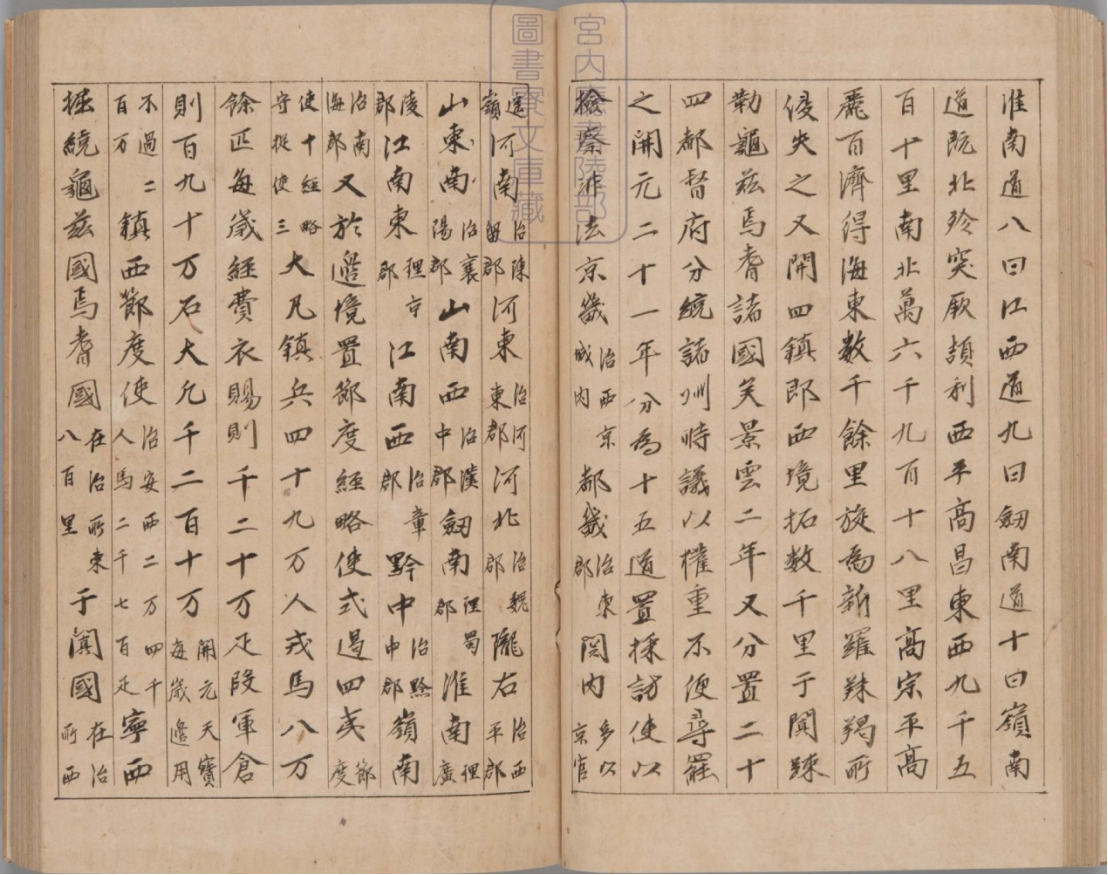 淮南道八曰江西道九曰劔南道十曰嶺南
道既北殄突厥頡利西平高昌東西九千五
百十里南北萬六千九百十八里高宗平高
麗百濟得海東数千餘里旋為新羅靺羯所
侵失之又開四鎮即西境拓数千里于闐疎
勒龜茲焉耆諸國矣景雲二年又分置二十
四都督府分統諸州時議以權重不便尋罷
之開元二十一年分為十五道置採訪使以
檢察非法京畿治西京城内都畿治東郡関内多以京官
遥嶺河南治陳留郡河東治河東郡河北治魏郡隴右治西平郡
山東南治襄陽郡山南西治漢中郡劔南理蜀郡淮南理廣
陵郡江南東理郡江南西治章郡黔中治黔中郡嶺南
治南海郡又於邉境置節度経略使式遏四夷節度
使十経略守捉使三大凡鎮兵四十九万人戎馬八万
餘匹每歳経費衣賜則千二十万疋段軍倉
則百九十万石大凡千二百十万開元天寶每歳邉用
不過二百万鎮西節度使治安西二万四千人馬二千七百疋寧西
撫統龜茲國焉耆國在治所東八百里于闐國在治所西
宮内
圖書寮文庫藏